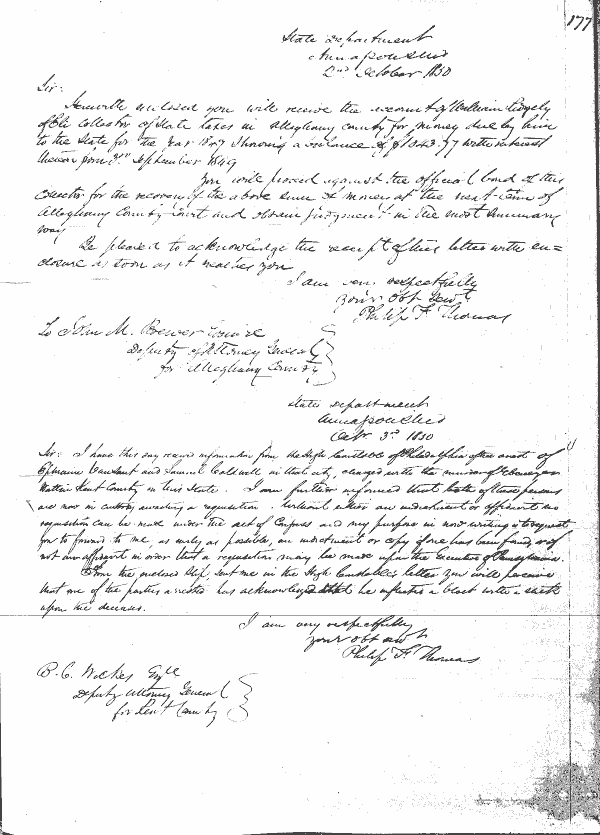 177
State Department
Annapolis Md
2nd October 1850
Sir:
Herewith enclosed you will receive the account of William Ridgely
of Eli Collector of State taxes in Alleghany County for money due by him
to the State for the year 1847 showing a balance of $1043.77 with interest
thereon from 3rd September 1849
You will proceed against the official bond of this
Collector for the recovery of the above sum of money at the next term of
Alleghany County Court and obtain judgment in the most summary
way
Be pleased to acknowledge the receipt of this letter with en=
closure as soon as it reaches you
I am very respectfully
your obt servt
Philip F. Thomas
To John M. Brewer Esquire
Deputy Attorney General
for Alleghany County
State Department
Annapolis Md
Oct. 3d 1850
Sir: I have this day received information from the High Constable of Philadelphia of the arrest of
Ephraim Vansant and Samuel Caldwell in that city, charged with the murder of Ebenezer
in Kent County in this State. I am further informed that both of these persons
are now in custody awaiting a requisition. Without either an indictment or affidavit no
requisition can be made under the act of Congress and my purpose in now writing is to request
you to forward to me, as early as possible, an indictment or copy if one has been found, or if
not an affidavit in order that a requisition may be made upon the Executive of Pennsylvania.
From the enclosed slip, sent me in the High Constable's letter you will perceive
that one of the parties arrested has acknowledged that he inflicted a blow with a
upon the deceased.
I am very respectfully
your obt servt
Philip F. Thomas
Wickes Esqre
Deputy Attorney General
for Kent County